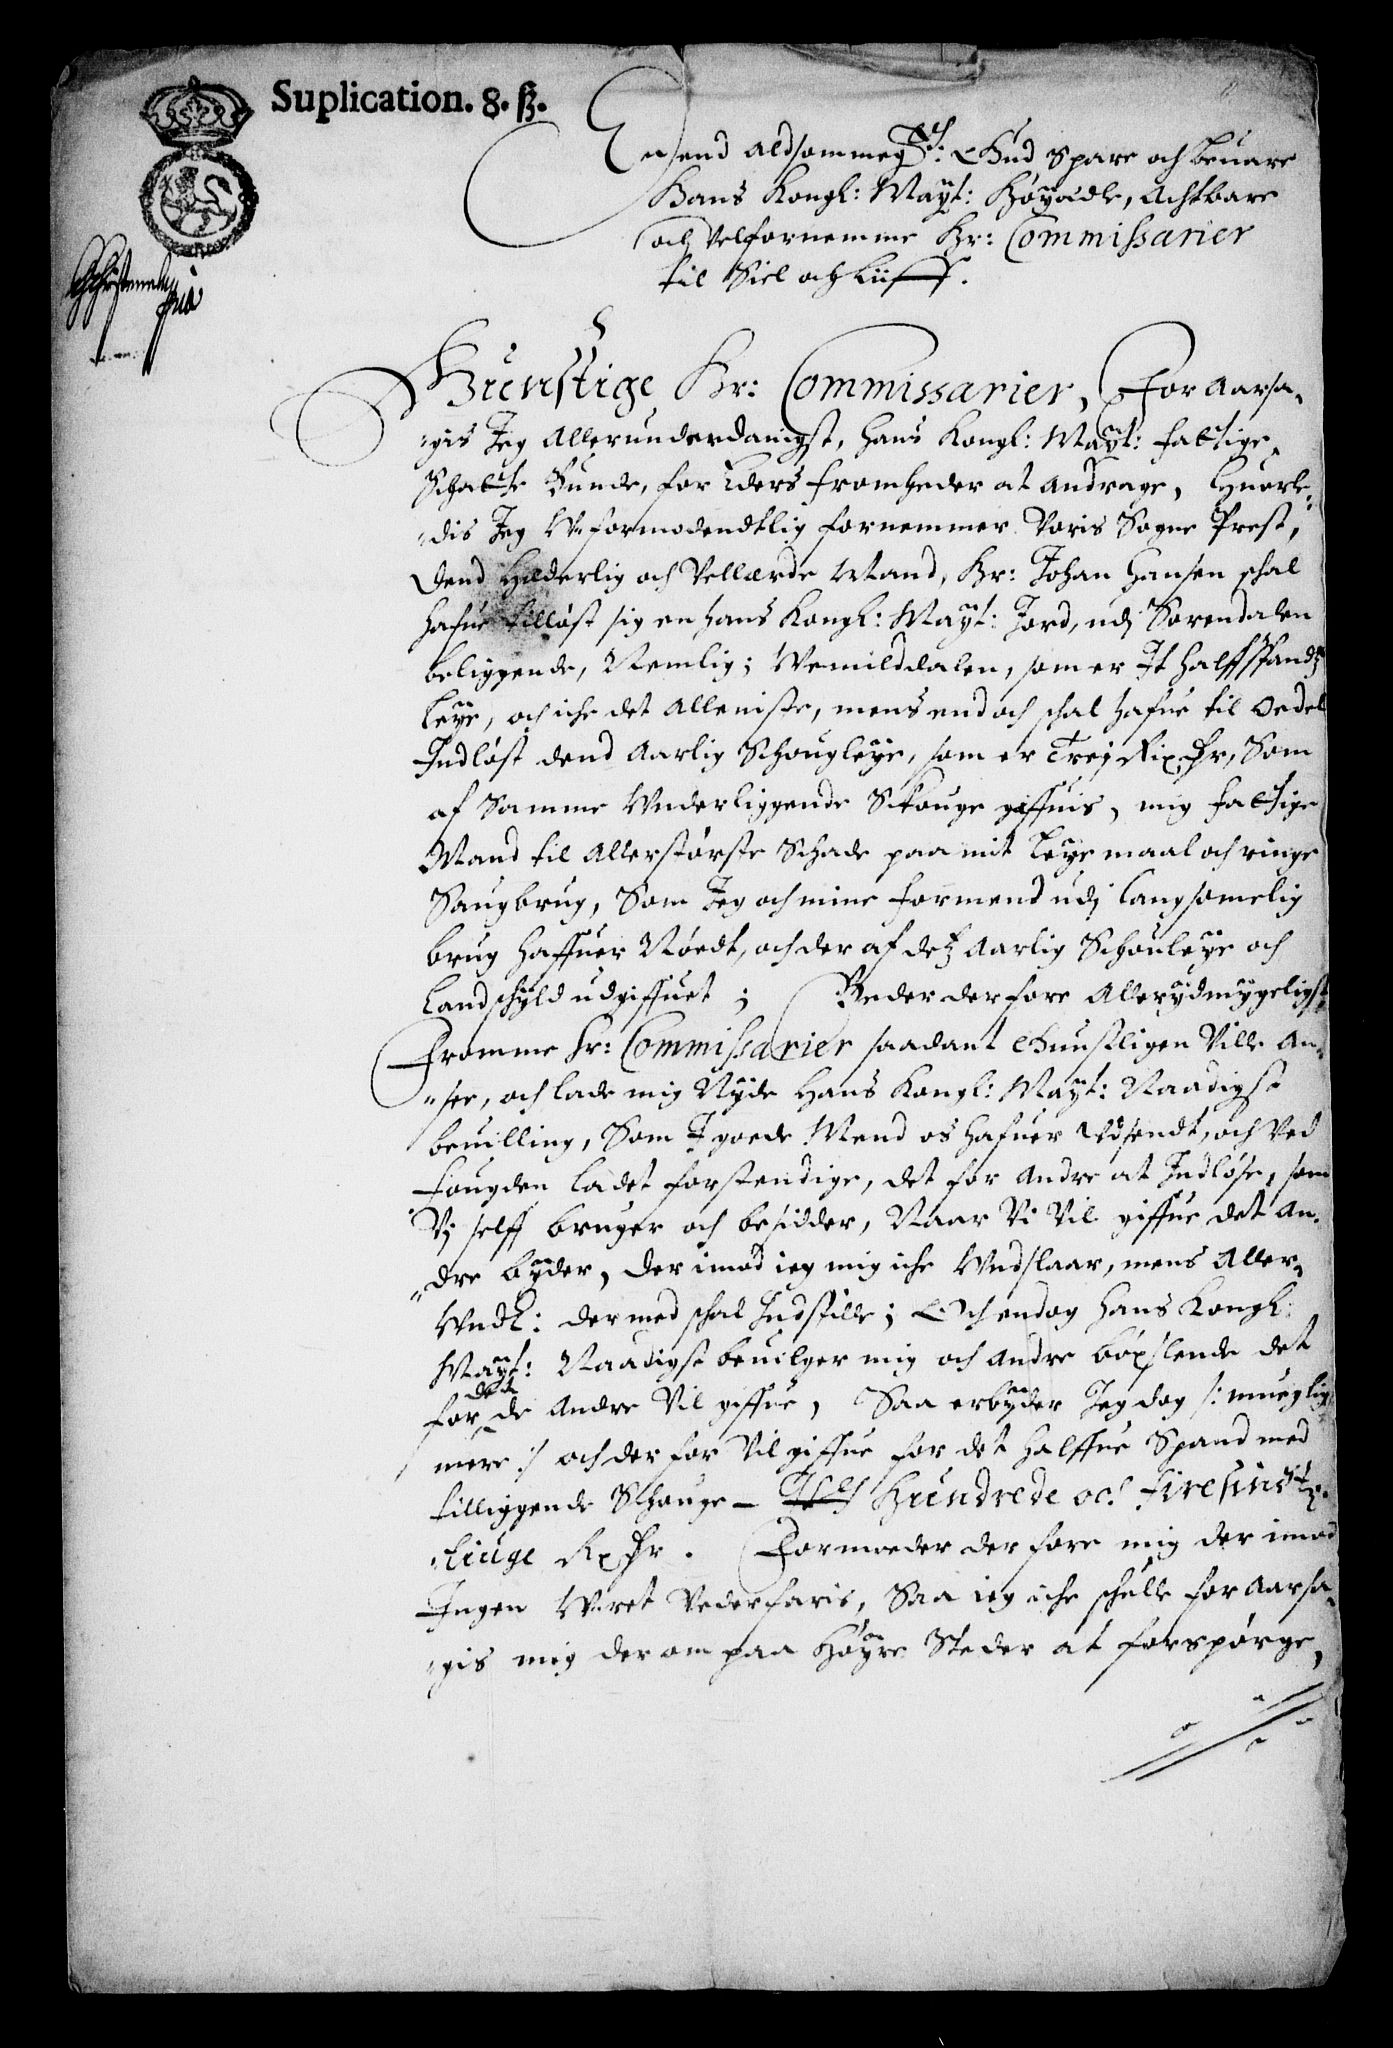 Suplication. 8. ß.
end aldsommeg Gud spare och beuare
Hans Kongl: Mayt: Höyädle, Achtbare
och velfornemme Hr: Commissarier
til Siel och Liiff.
Gunstige Hr: Commissarier, For aarsa„
„gis Jeg Allerunderdanigst, Hans Kongl: Mayt: fattige
Schatte Bunde, for Eders fromheder at andrage, Huorle„
„dis Jeg Wformodendtlig fornemmer Voris Sogne Prest,
Dend Hæderlig och Vellærde Mand, Hr: Johan Hansen schal
hafue tilløst sig en hans Kongl: Mayt: Jord, udj Sorendalen
beliggende, Nemlig; Wemilddalen, som er It halffspandz
Leye, och iche det alleniste, mens end och schal hafue til Oedel
Indløst dend Aarlig Schougleye, som er Trej Rix Dr, Som
af Samme Vnderliggende Skouge giffuis, mig fattige
Mand til Allerstørste Schade paa mit Leye maal och ringe
Saugbrug, Som Jeg och mine formend udj langsomelig
brug haffuer Nøedt, och der af dets Aarlig Schouleye och
Landschyld udgiffuet; Beder derfore Allerydmygeligst
Fromme Hr: Commissarier saadant Gunstligen Ville An„
„see, och lade mig Nyde Hans Kongl: Mayt: Naadigst
beuilling, Som I goede Mend os hafuer Vdsendt, och Ved
fougden ladet forstendige, det for Andre at Indløse, som
Vj selff bruger och besidder, Naar Vi Vil giffue det An„
„dre byder, der imod ieg mig iche Vndslaar, mens Aller„
Vndl: der med schal Indstille; Och endog Hans Kongl:
Mayt: Naadigst beuilger mig och Andre böxlende det
for det de Andre Vil giffue, Saa erbyder Jeg dog /: mueglig
mere :/ och der for Vil giffue for det halffue Spand med
tilliggende Schouge – Hundrede och firesinds„
„tiuge Rx Dr. Formoeder derfore mig der imod
Ingen Wret Vederfaris, Saa ieg iche schulle for aarsa„
„gis mig der om paa Höyre Steder at forspörge,